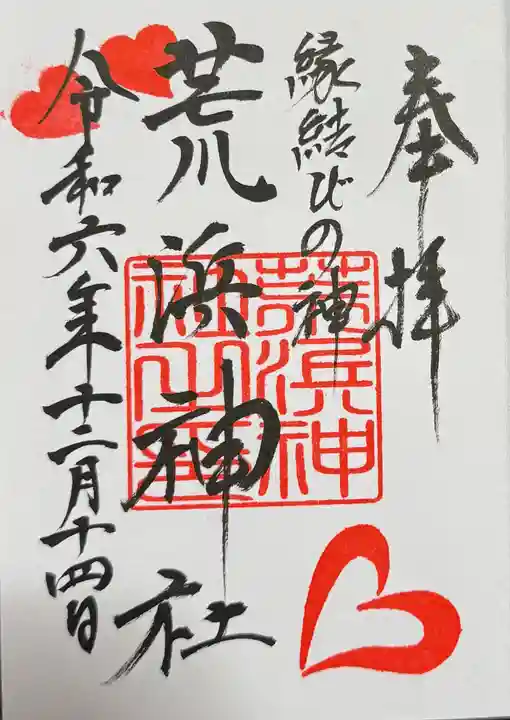 奉拝
縁結びの神
荒浜神社
荒浜神
社之璽
令和六年十二月十四日